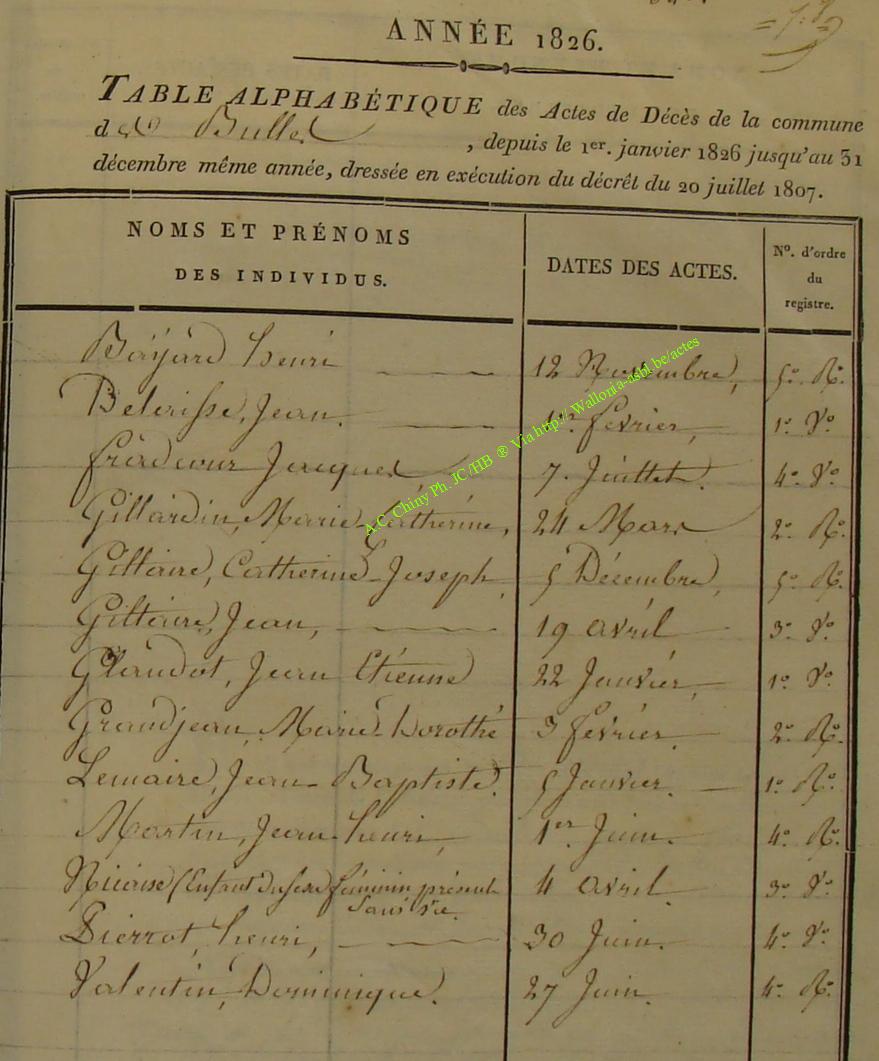 ANNÉE 1826.
TABLE ALPHABÉTIQUE des Actes de Décès de la commune
d , depuis le 1er. janvier 1826 jusqu'au 31
décembre même année, dressée en exécution du décrêt du 20 juillet 1807.
NOMS ET PRÉNOMS DES INDIVIDUS. DATES DES ACTES. No. d'ordre du registre.
Bayard henri 12 Novembre, 5o. Ro.
Jean. 1er. fevrier, 1o. Vo.
Jacques, 7. Juillet. 4o. Vo.
Gillardin, Marie-Catherine, 24 Mars 2o. Ro.
Giltaire, Catherine-Joseph, 5 Décembre, 5o. Ro.
Giltaire, Jean, 19 avril 3o. Vo.
Glaudot, Jean Etienne 22 Janvier, 1o. Vo.
Grandjean, Marie-Dorothé 3 février. 2o. Ro.
Lemaire, Jean-Baptiste. 5 Janvier. 1o. Ro.
Martin, Jean-henri, 1er. Juin. 4o. Ro.
Nicaise (Enfant du sexe féminin présenté 4 avril. 3o. Vo.
Sans vie.
Pierrot, henri, 30 Juin. 4o. Vo.
Valentin, Dominique. 27 Juin. 4o. Ro.
A.C. Chiny Ph. JC /HB ® Via http:\\ Wallonia-asbl.be/actes